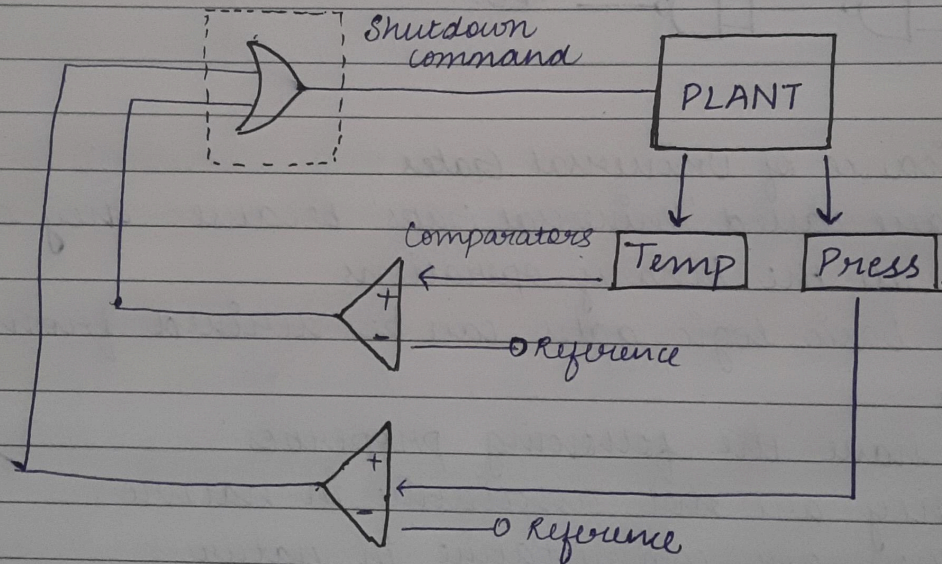 Shutdown
command
PLANT
Comparators
Temp
Press
+
-
Reference
+
-
Reference